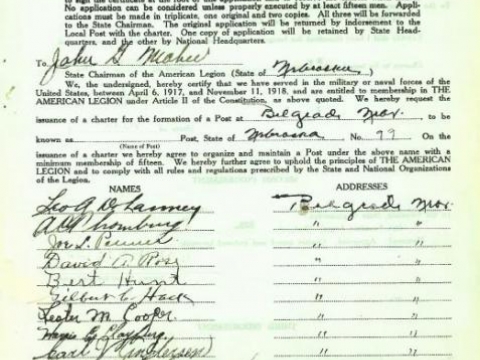 to sign the certificate at the foot of the
No application can be considered unless properly executed by at least fifteen men. Appli-
cations must be made in triplicate, one original and two copies. All three will be forwarded
to the State Chairman. The original application will be returned by indorsement to the
Local Post with the charter. One copy of application will be retained by State Head-
quarters, and the other by National Headquarters.
To John G
State Chairman of the American Legion (State of Nebraska)
We, the undersigned, hereby certify that we have served in the military or naval forces of the
United States, between April 6, 1917, and November 11, 1918, and are entitled to membership in THE
AMERICAN LEGION under Article II of the Constitution, as above quoted. We hereby request the
issuance of a charter for the formation of a Post at Belgrade Nebr. , to be
known as Post, State of Nebraska No. 79 On the
(Name of Post)
issuance of a charter we hereby agree to organize and maintain a Post under the above name with a
minimum membership of fifteen. We hereby further agree to uphold the principles of THE AMERICAN
LEGION and to comply with all rules and regulations prescribed by the State and National Organizations
of the Legion.
NAMES ADDRESSES
Leo A Belgrade Nebr.
" "
Joe L. " "
David A. Rose " "
Bert Hunt " "
Gilbert C. " "
Lester M. Cooper. " "
" "
Carl " "